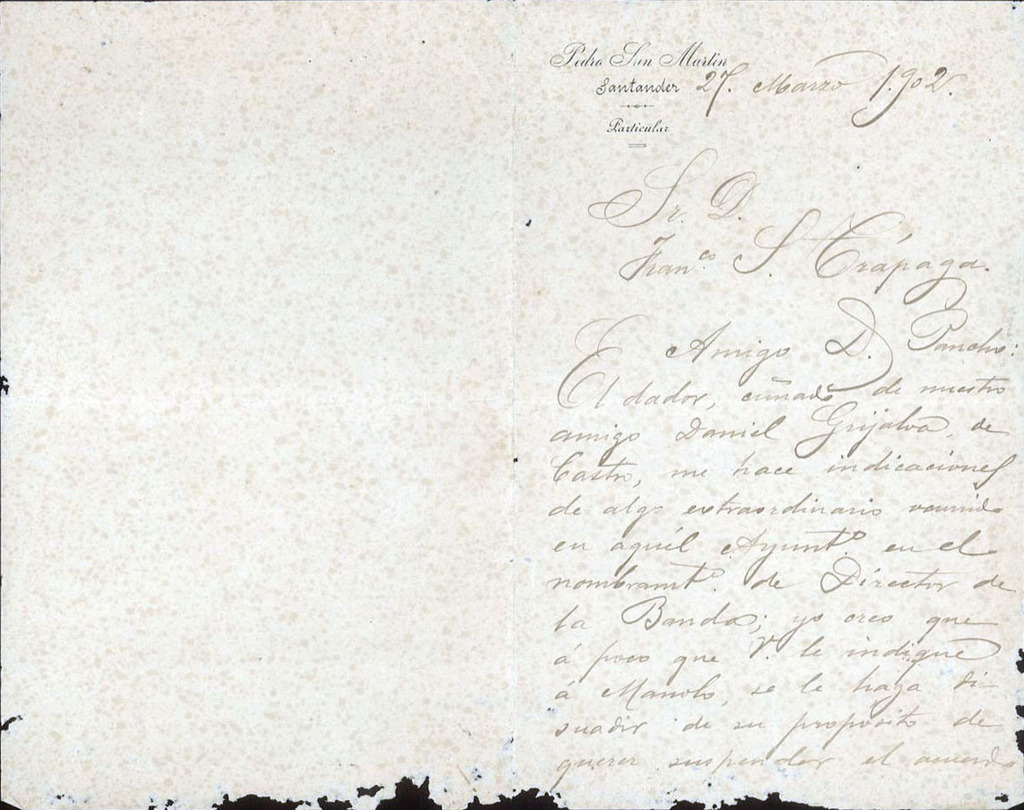 Pedro San Martín
Santander 27. Marzo 1.902.
Particular
Sr. D.
Fran.co S. Trápaga.
Amigo D. Pancho:
El dador, cuñado de nuestro
amigo Daniel Grijalva, de
Castro, me hace indicaciones
de algo extraordinario ocurrido
en aquél Ayunt.o en el
nombramt.o de Director de
la Banda; yo creo que
á poco que V. le indique
á Manolo, se le haga di-
suadir de su proposito de
querer suspender el acuerdo